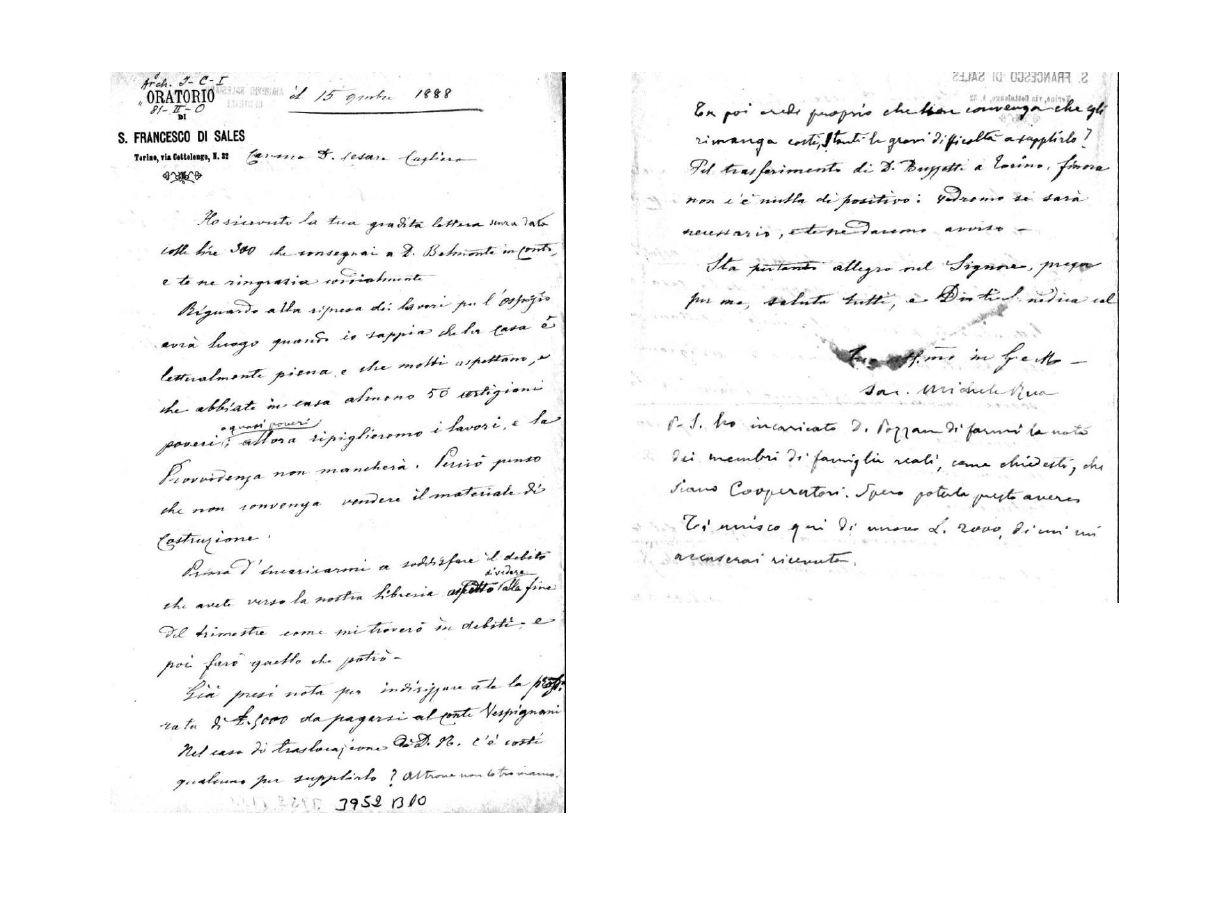 Arch. J-C-I
ORATORIO
81-II-O
DI
S. FRANCESCO DI SALES
Torino, via Cottolengo, N. 32
il 15 9mbre 1888
Carissimo D. Cesare Cagliero
Ho ricevuto la tua gradita lettera senza data
colle lire 300 che consegnai a D. Belmonte in conto,
e te ne ringrazia cordialmente
Riguardo alla ripresa dei lavori per l'Ospizio
avrà luogo quando io sappia che la casa è
letteralmente piena e che molti aspettano, e
che abbiate in casa almeno 50 artigiani
o quasi poveri
poveri; allora ripiglieremo i lavori, e la
Provvidenza non mancherà. Perciò penso
che non convenga vendere il materiale di
Costruzione.
Prima d'incaricarmi a soddisfare il debito
di vedere
che avete verso la nostra libreria aspetto alla fine
del trimestre come mi troverò in debiti e
poi farò quello che potrò -
Già presi nota per indirizzare a te la pross.
rata di £. 5000 da pagarsi al conte Vespignani
Nel caso di traslocazione di D. N. c'è costì
qualcuno per supplirlo? Altrove non lo troviamo.
3952 B10
Tu poi credi proprio che non convenga che egli
rimanga costì, stanti le gravi difficoltà a supplirlo?
Pel trasferimento di D. Buzzetti a Torino, finora
non c'è nulla di positivo: vedremo se sarà
necessario, e te ne daremo avviso -
Sta pertanto allegro nel Signore, prega
per me, saluta tutti, e Dio ti benedica col
Tuo aff.mo in G. e M. -
Sac. Michele Rua
P. S. ho incaricato D. Bozzan di farmi la nota
dei membri di famiglie reali, come chiedesti, che
siano Cooperatori. Spero poterla presto avere
Ti unisco qui di nuovo L. 2000, di cui mi
accuserai ricevuta.